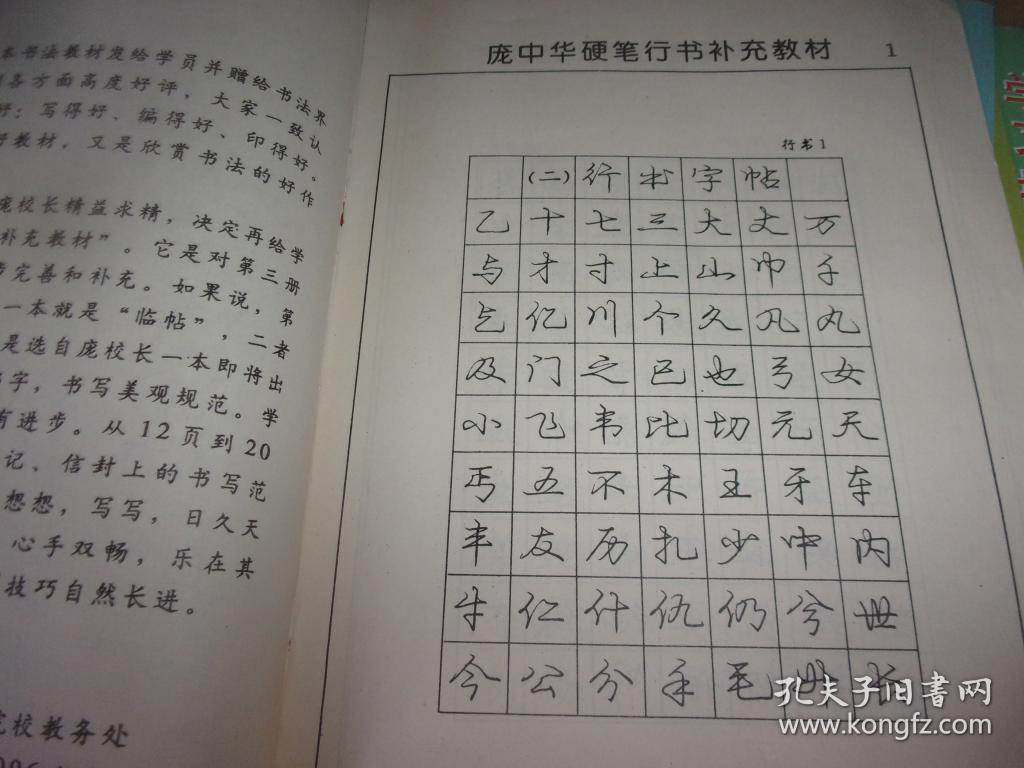 本书法教材发给学员并赠给书法界
各方面高度好评，大家一致认
好：写得好、编得好、印得好。
好教材，又是欣赏书法的好作
庞校长精益求精，决定再给学
补充教材”。它是对第三册
完善和补充。如果说，第
一本就是“临帖”，二者
是选自庞校长一本即将出
字，书写美观规范。学
有进步。从12页到20
记、信封上的书写范
想想，写写，日久天
心手双畅，乐在其
技巧自然长进。
校教务处
庞中华硬笔行书补充教材 1
行书1
(二)行书字帖
乙十七三大丈万
与才寸上山巾千
乞亿川个久凡丸
及门之已也弓女
小飞韦比切元天
丐五不木王牙车
丰友历扎少中内
牛仁什仇仍兮世
今公分手毛
孔夫子旧书网
www.kongfz.com